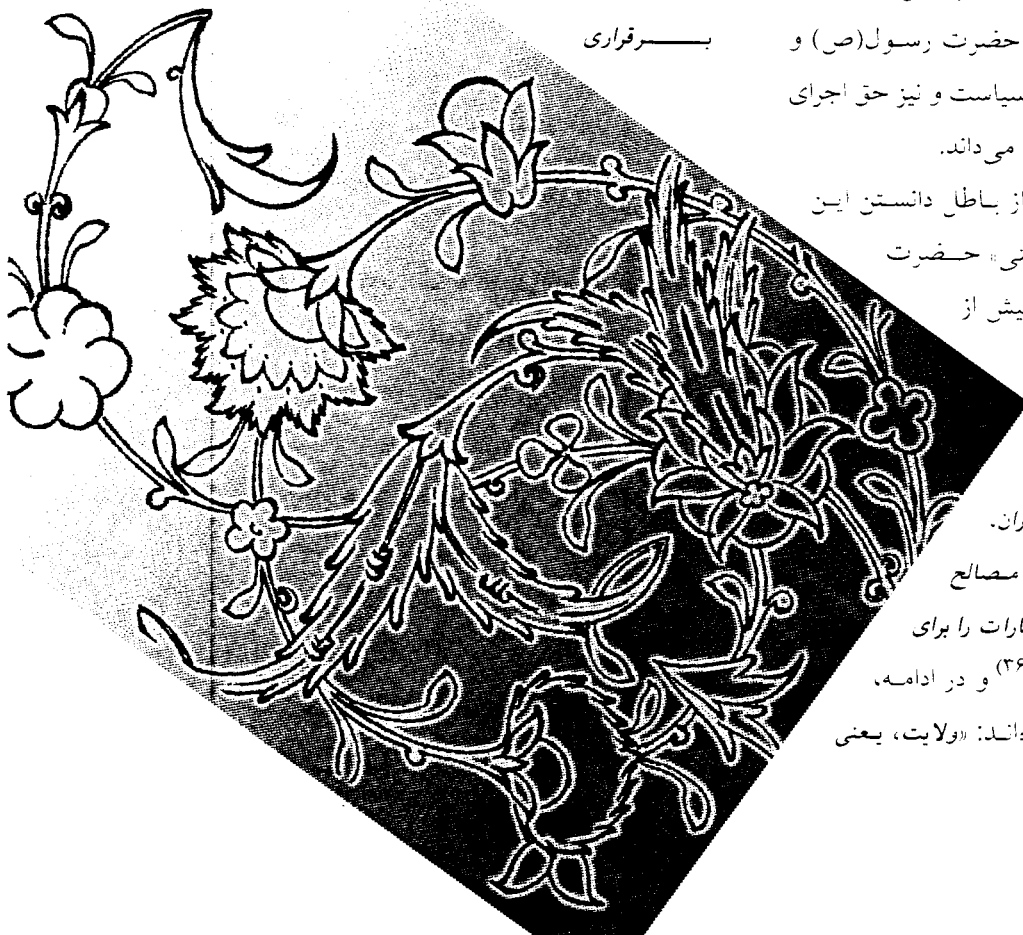 حضرت رسول(ص) و
برقراری
سیاست و نیز حق اجرای
می‌داند.
از باطل دانستن این
حضرت
یش از
ران.
مصالح
ارات را برای
(۳۶) و در ادامه،
داند: «ولایت، یعنی